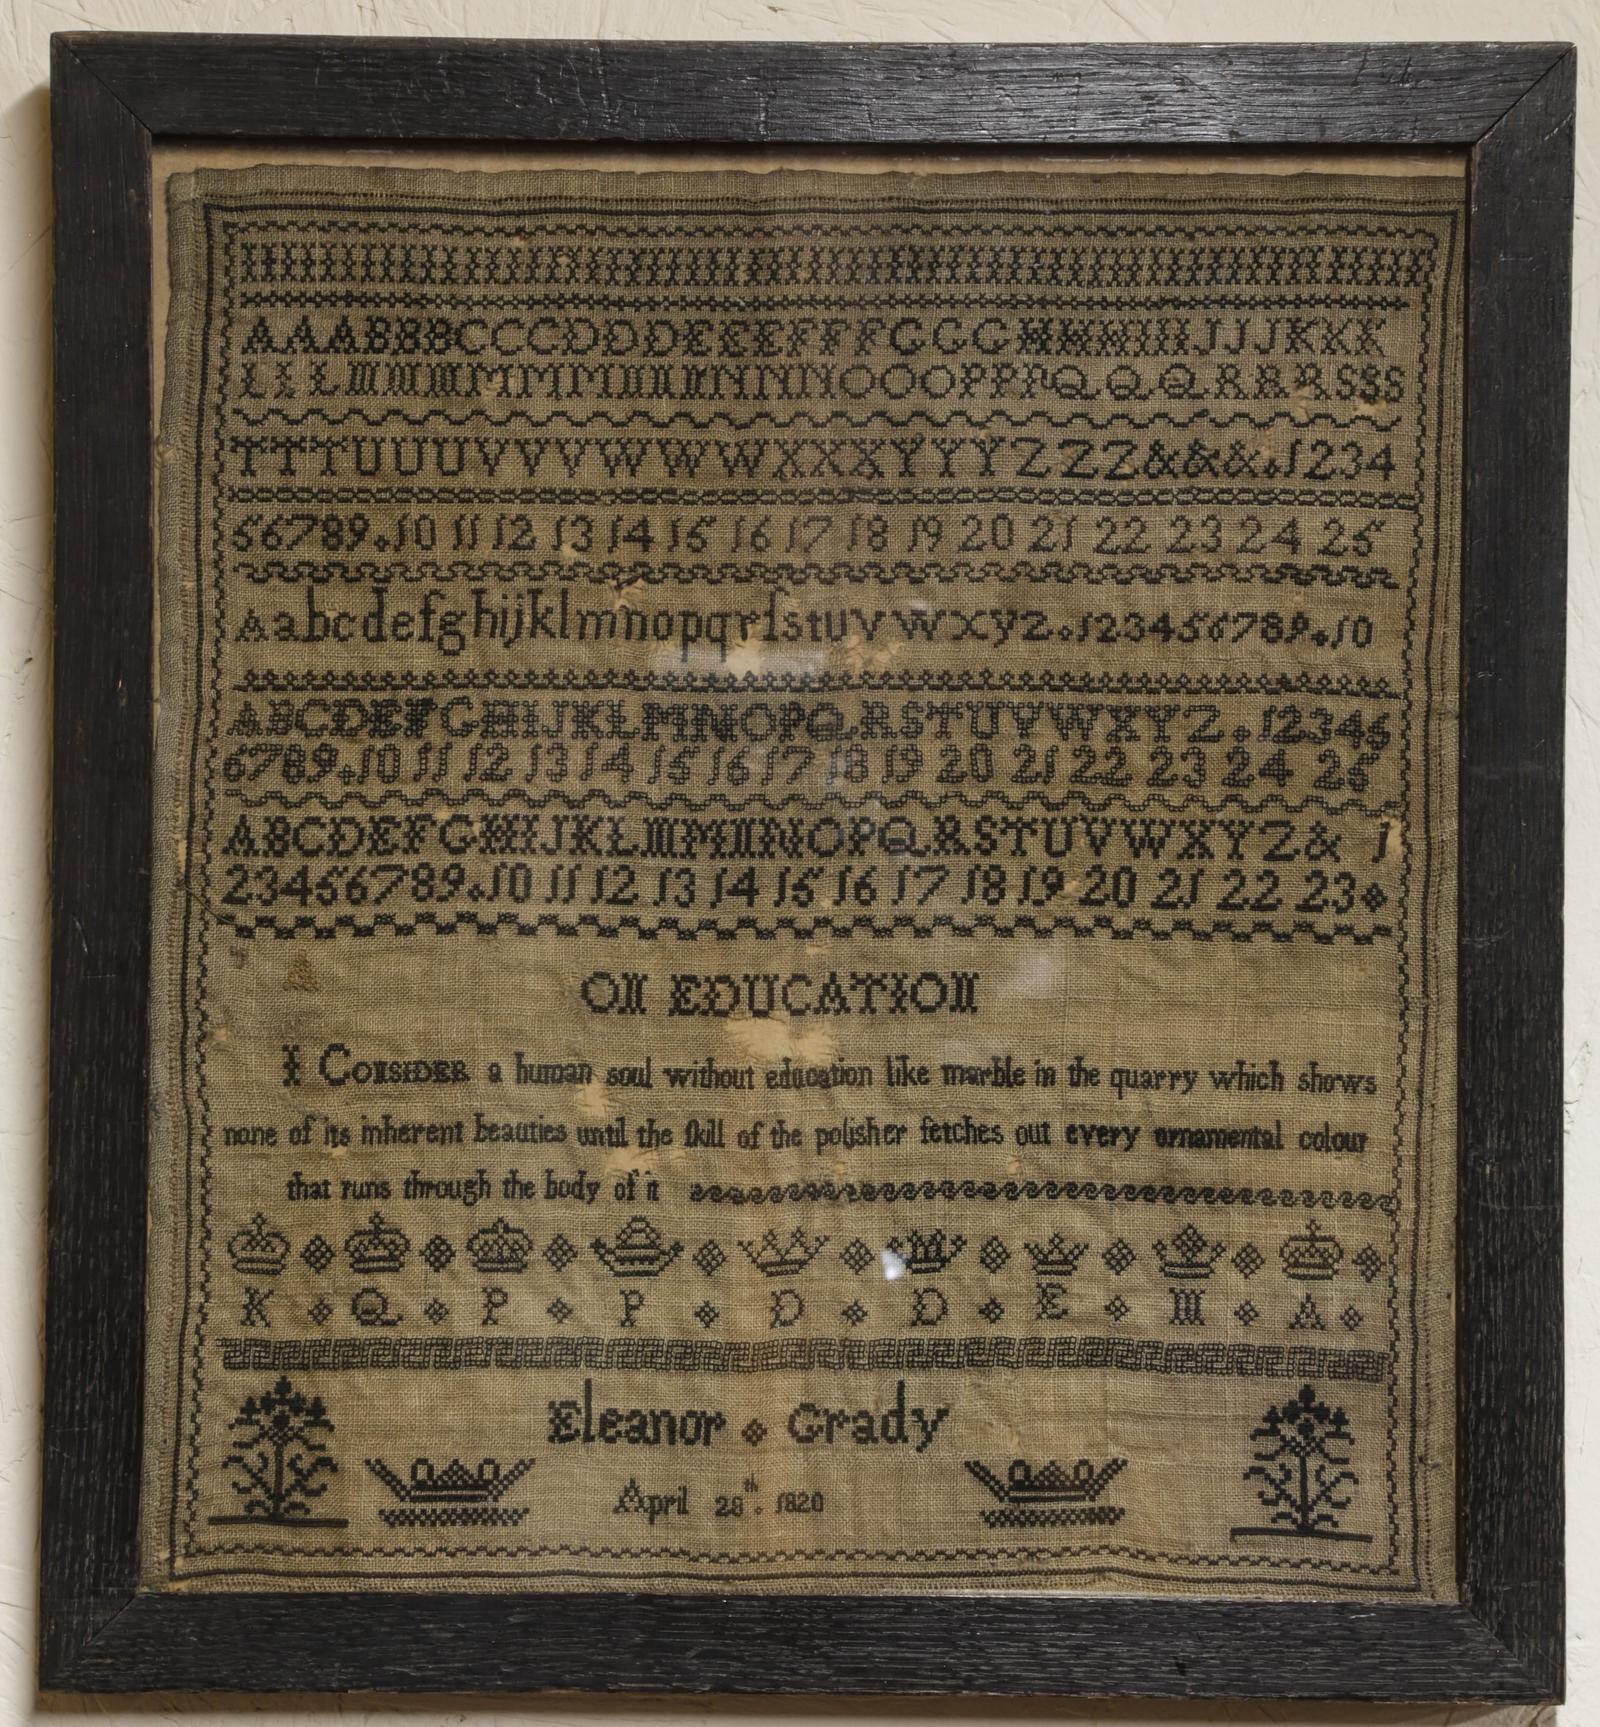 AAABBBCCCDDDEEEFFFGGGHHHIIIJJJKKK
LLLMMMMMMNNNNNNOOOPPPQQQRRRSSS
TTTUUUVVVWWWXXXYYYZZZ&&&.1234
56789.10 11 12 13 14 15 16 17 18 19 20 21 22 23 24 25
Aabcdefghijklmnopqrſstuvwxyz.123456789.10
ABCDEFGHIJKLMNOPQRSTUVWXYZ.12345
6789.10 11 12 13 14 15 16 17 18 19 20 21 22 23 24 25
ABCDEFGHIJKLMMNNOPQRSTUVWXYZ& 1
23456789.10 11 12 13 14 15 16 17 18 19 20 21 22 23
ON EDUCATION
I CONSIDER a human soul without education like marble in the quarry which shows
none of its inherent beauties until the ſkill of the polisher fetches out every ornamental colour
that runs through the body of it
K Q P P D D E M A
Eleanor Grady
April 28th. 1820